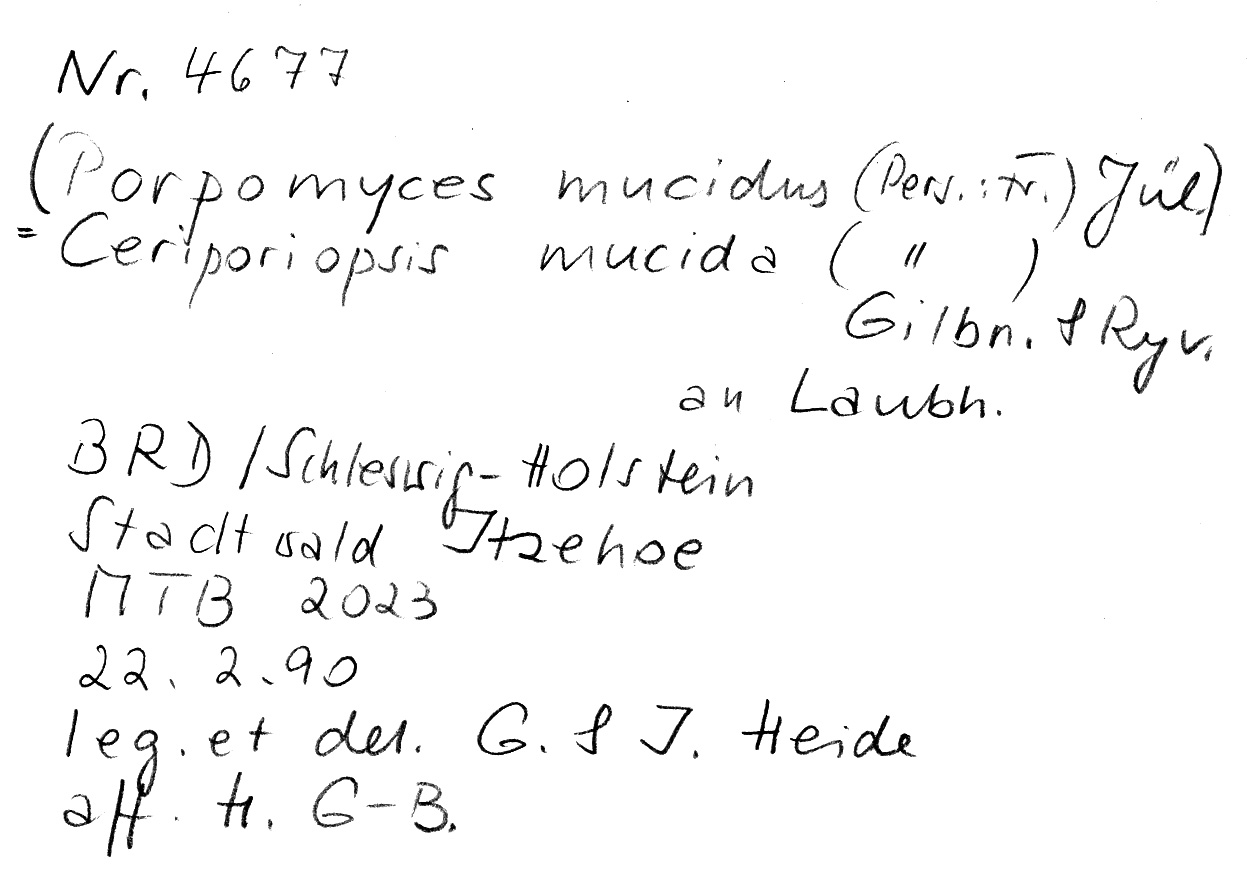 Nr. 4677
(Porpomyces mucidus (Pers.: Fr.) Jül.)
= Ceriporiopsis mucida ( " )
Gilbn. & Ryv.
an Laubh.
BRD / Schleswig-Holstein
Stadtwald Itzehoe
MTB 2023
22. 2. 90
leg. et det. G. & J. Heide
aff. H. G-B.